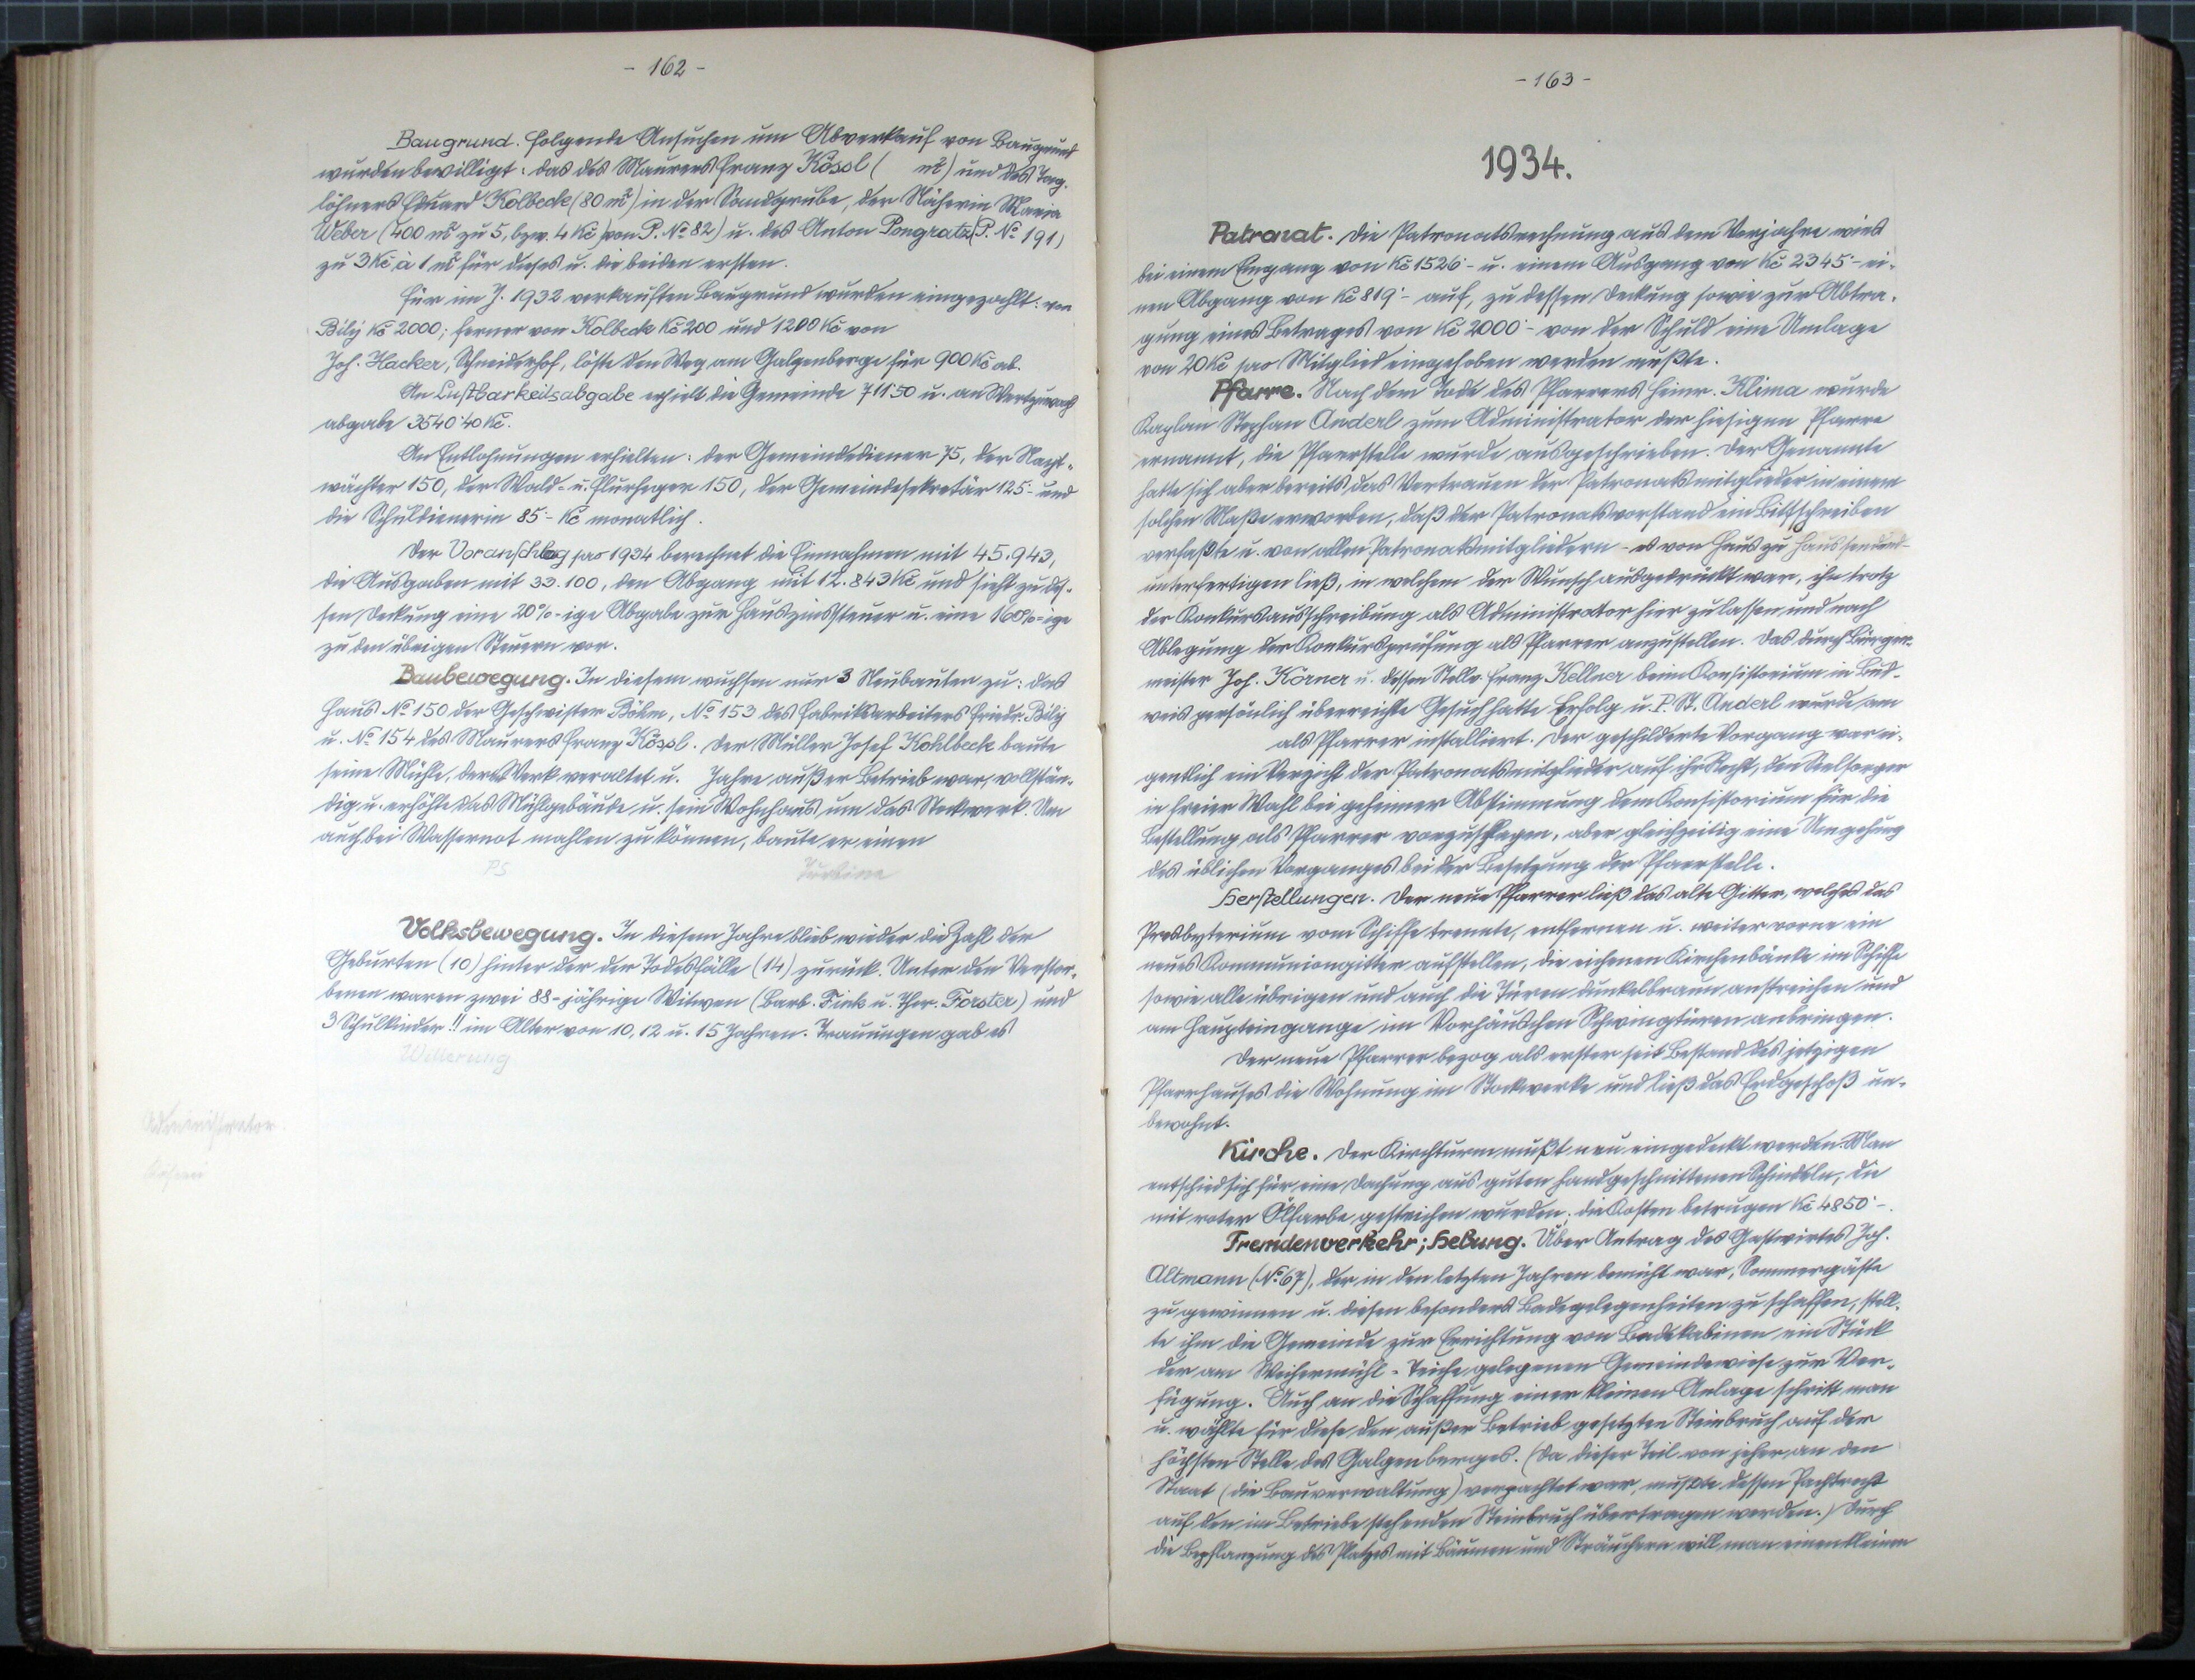 - 162 -
Baugrund. Folgende Ansuchen um Abverkauf von Baugrund
wurden bewilligt: das des Maurers Franz Kössl ( m²) und des Tag-
löhners Eduard Kolbeck (80 m²) in der Sandgrube, der Näherin Maria
Weber (400 m² zu 5, bzw. 4 Kč) von P. No 82) u. des Anton Pongratz (P. No 191)
zu 3 Kč à 1 m² für dieses u. die beiden ersten.
Für im J. 1932 verkauften Baugrund wurden eingezahlt: von
Bilý Kč 2000; ferner von Kolbeck Kč 200 und 1200 Kč von
Joh. Hacker, Schneiderhof, löste den Weg am Galgenberge für 900 Kč ab.
An Lustbarkeitsabgabe erhielt die Gemeinde 711·50 u. an Wertzuwachs
abgabe 3540·40 Kč.
An Entlohnungen erhielten: der Gemeindediener 75, der Nacht-
wächter 150, der Wald- u. Flurheger 150, der Gemeindesekretär 125·- und
die Schuldienerin 85·- Kč monatlich.
Der Voranschlag pro 1934 berechnet die Einnahmen mit 45.943,
die Ausgaben mit 33.100, den Abgang mit 12.843 Kč und sieht zu des-
sen Deckung eine 20%-ige Abgabe zur Hauszinssteuer u. eine 160%-ige
zu den übrigen Steuern vor.
Baubewegung. In diesem wuchsen nur 3 Neubauten zu: das
Haus No 150 der Geschwister Böhm, No 153 des Fabriksarbeiters Friedr. Bilý
u. No 154 des Maurers Franz Kössl. Der Müller Josef Kohlbeck baute
seine Mühle, deren Werk veraltet u. Jahre außer Betrieb war, vollstän-
dig u. erhöhte das Mühlgebäude u. sein Wohnhaus um das Stockwerk. Um
auch bei Wassernot mahlen zu können, baute er einen
PS Turbine
Volksbewegung. In diesem Jahre blieb wieder die Zahl der
Geburten (10) hinter der der Todesfälle (14) zurück. Unter den Verstor-
benen waren zwei 88-jährige Witwen (Barb. Fink u. Ther. Forster) und
3 Schulkinder!! im Alter von 10, 12 u. 15 Jahren. Trauungen gab es
Witterung
Administrator
- 163 -
1934.
Patronat. Die Patronatsrechnung aus dem Vorjahre wies
bei einem Eingang von Kč 1526·- u. einem Ausgang von Kč 2345·- ei-
nen Abgang von Kč 819·- auf, zu dessen Deckung sowie zur Abtra-
gung eines Betrages von Kč 2000·- von der Schuld eine Umlage
von 20 Kč pro Mitglied eingehoben werden mußte.
Pfarre. Nach dem Tode des Pfarrers Heinr. Klima wurde
Kaplan Stephan Anderl zum Administrator der hiesigen Pfarre
ernannt, die Pfarrstelle wurde ausgeschrieben. Der Genannte
hatte sich aber bereits das Vertrauen der Patronatsmitglieder in einem
solchen Maße erworben, daß der Patronatsvorstand ein Bittschreiben
verfaßte u. von allen Patronatsmitgliedern - es von Haus zu Haus sendend -
unterfertigen ließ, in welchem der Wunsch ausgedrückt war, ihn trotz
der Konkursausschreibung als Administrator hier zu lassen und nach
Ablegung der Konkursprüfung als Pfarrer anzustellen. Das durch Bürger-
meister Joh. Körner u. dessen Stellv. Franz Kellner beim Konsistorium in Bud-
weis persönlich überreichte Gesuch hatte Erfolg u. P. St. Anderl wurde am
als Pfarrer installiert. Der geschilderte Vorgang war ei-
gentlich ein Verzicht der Patronatsmitglieder auf ihr Recht, den Seelsorger
in freier Wahl bei geheimer Abstimmung dem Konsistorium für die
Bestellung als Pfarrer vorzuschlagen, aber gleichzeitig eine Umgehung
des üblichen Vorganges bei der Besetzung der Pfarrstelle.
Herstellungen. Der neue Pfarrer ließ das alte Gitter, welches das
Presbyterium vom Schiffe trennte, entfernen u. weiter vorne ein
neues Kommuniongitter aufstellen, die eichenen Kirchenbänke im Schiffe
sowie alle übrigen und auch die Türen dunkelbraun anstreichen und
am Haupteingange im Vorhäuschen Schwingtüren anbringen.
Der neue Pfarrer bezog als erster seit Bestand des jetzigen
Pfarrhauses die Wohnung im Stockwerke und ließ das Erdgeschoß un-
bewohnt.
Kirche. Der Kirchturm mußt neu eingedeckt werden. Man
entschied sich für eine Dachung aus guten handgeschnittenen Schindeln, die
mit roter Ölfarbe gestrichen wurden. Die Kosten betrugen Kč 4850·-.
Fremdenverkehr; Hebung. Über Antrag des Gastwirtes Joh.
Altmann (No 67), der in den letzten Jahren bemüht war, Sommergäste
zu gewinnen u. diesen besonders Badegelegenheiten zu schaffen, stell-
te ihm die Gemeinde zur Errichtung von Badekabinen ein Stück
der am Weihermühl-Teiche gelegenen Gemeindewiese zur Ver-
fügung. Auch an die Schaffung einer kleinen Anlage schritt man
u. wählte für diese den außer Betrieb gesetzten Steinbruch auf der
höchsten Stelle des Galgenberges. (Da dieser Teil von jeher an den
Staat (die Bauverwaltung) verpachtet war, mußte dessen Pachtrecht
auf den im Betriebe stehenden Steinbruch übertragen werden.) Durch
die Bepflanzung des Platzes mit Bäumen und Sträuchern will man einen kleinen